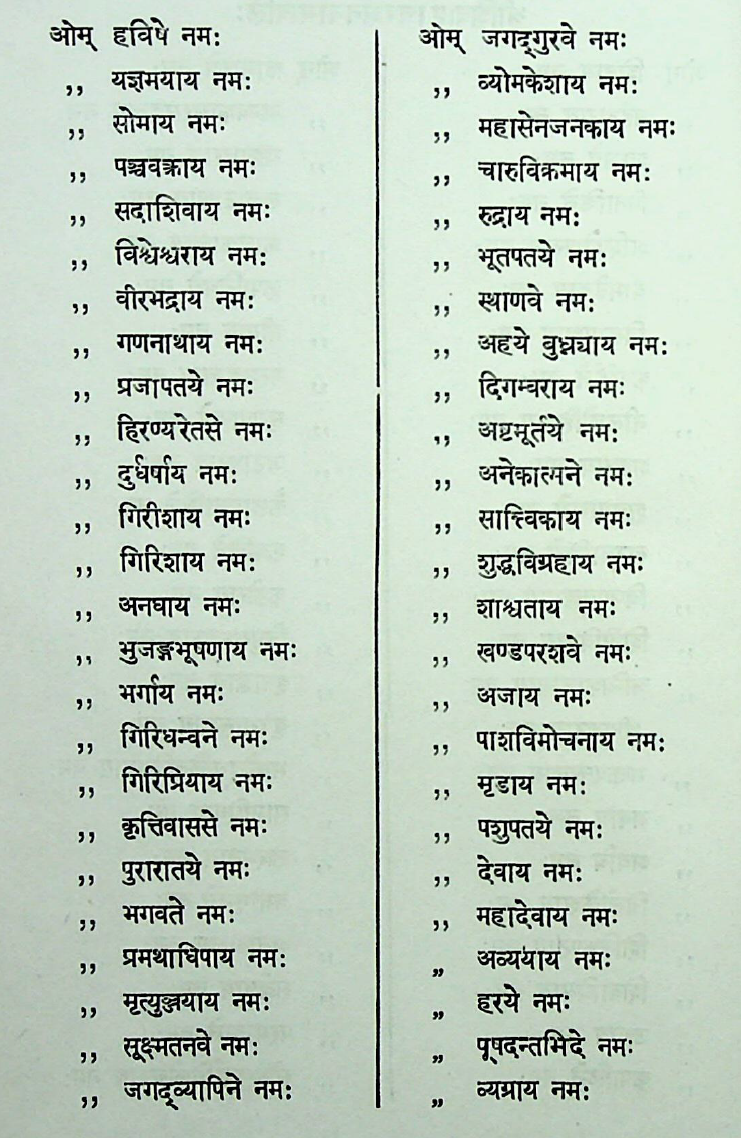 ओम् हविषे नमः
,, यज्ञमयाय नमः
,, सोमाय नमः
,, पञ्चवक्त्राय नमः
,, सदाशिवाय नमः
,, विश्वेश्वराय नमः
,, वीरभद्राय नमः
,, गणनाथाय नमः
,, प्रजापतये नमः
,, हिरण्यरेतसे नमः
,, दुर्धर्षाय नमः
,, गिरीशाय नमः
,, गिरिशाय नमः
,, अनघाय नमः
,, भुजङ्गभूषणाय नमः
,, भर्गाय नमः
,, गिरिधन्वने नमः
,, गिरिप्रियाय नमः
,, कृत्तिवाससे नमः
,, पुरारातये नमः
,, भगवते नमः
,, प्रमथाधिपाय नमः
,, मृत्युञ्जयाय नमः
,, सूक्ष्मतनवे नमः
,, जगद्व्यापिने नमः
ओम् जगद्गुरवे नमः
,, व्योमकेशाय नमः
,, महासेनजनकाय नमः
,, चारुविक्रमाय नमः
,, रुद्राय नमः
,, भूतपतये नमः
,, स्थाणवे नमः
,, अहये बुध्न्याय नमः
,, दिगम्बराय नमः
,, अष्टमूर्तये नमः
,, अनेकात्मने नमः
,, सात्त्विकाय नमः
,, शुद्धविग्रहाय नमः
,, शाश्वताय नमः
,, खण्डपरशवे नमः
,, अजाय नमः
,, पाशविमोचनाय नमः
,, मृडाय नमः
,, पशुपतये नमः
,, देवाय नमः
,, महादेवाय नमः
,, अव्ययाय नमः
,, हरये नमः
,, पूषदन्तभिदे नमः
,, व्यग्राय नमः